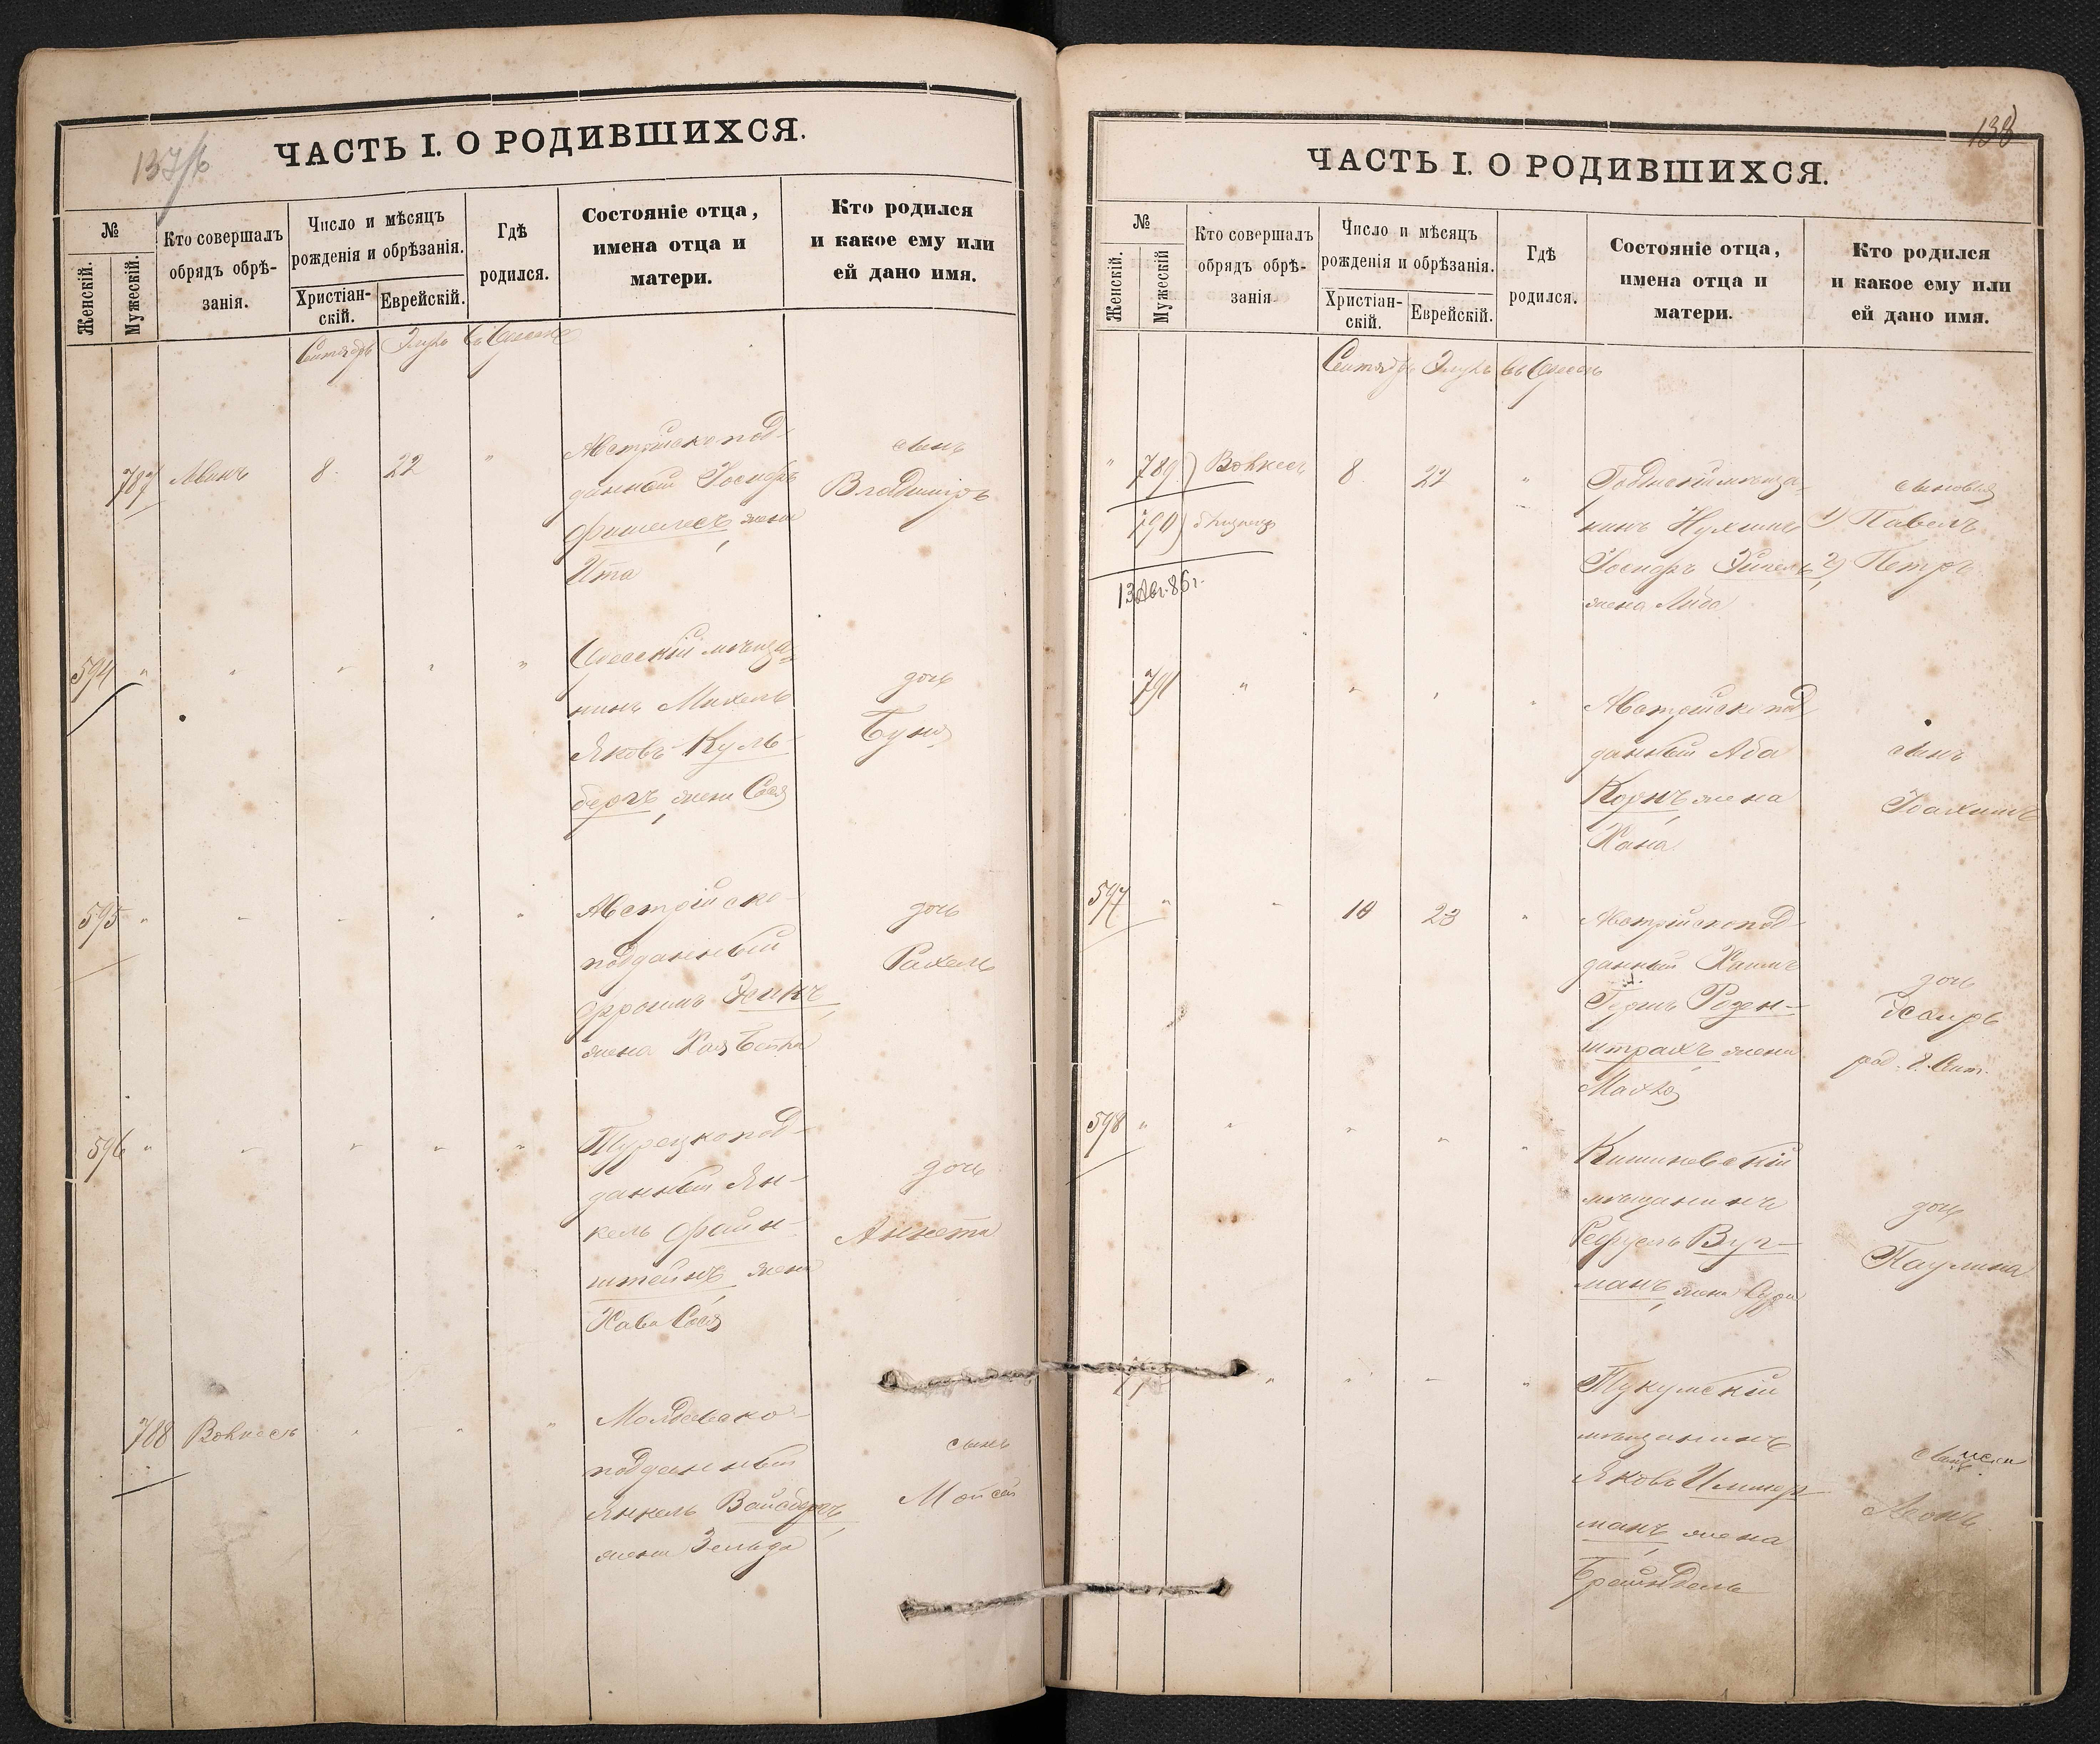 137/б
ЧАСТЬ I. О РОДИВШИХСЯ.
№
Женскій.
Мужескій.
Кто совершалъ
обрядъ обрѣ-
занія.
Число и мѣсяцъ
рожденія и обрѣзанія.
Христіан-
скій.
Еврейскій.
Гдѣ
родился.
Состояніе отца,
имена отца и
матери.
Кто родился
и какое ему или
ей дано имя.
Сентябрь Элулъ въ Одессѣ
787 8 22 "
Австрійскопод-
данный Іосифъ
Фишелесъ, жена
Ита
сынъ
Владиміръ
594 " " " " "
Одесскій мѣща-
нинъ Михель
Яковъ Куль-
бергъ, жена Сося
дочь
Буня
595 " " " " "
Австрійско-
подданный
Фроимъ Зейнъ,
жена Хая Бейла
дочь
Рахель
596 " " " " "
Турецкопод-
данный Ян-
кель Файн-
штейнъ, жена
Хава Сося
дочь
Аннета
788 " " "
Молдавско-
подданный
Янкель Вайсбергъ,
жена Зельда
сынъ
Мойсей
138
ЧАСТЬ I. О РОДИВШИХСЯ.
№
Женскій.
Мужескій
Кто совершалъ
обрядъ обрѣ-
занія
Число и мѣсяцъ
рожденія и обрѣзанія.
Христіан-
скій.
Еврейскій.
Гдѣ
родился.
Состояніе отца,
имена отца и
матери.
Кто родился
и какое ему или
ей дано имя.
Сентябрь Элулъ въ Одессѣ
" 789) 8 22 "
790)
13 Авг. 86 г.
мѣща-
нинъ Нухимъ
Іосифъ
жена Либа
сыновья
1) Павелъ
2) Петръ
791 " " " "
Австрійскопод
данный Аба
Корнъ, жена
Хана
сынъ
Іоахимъ
597 " " 10 23 "
Австрійскопод-
данный Хаимъ
Гершъ Розен-
штрахъ, жена
Малка
дочь
род. 8. Сент.
598 " " " " "
Кишиневскій
мѣщанинъ
Рефуель Вуг-
манъ, жена Сура
дочь
Паулина
" " " "
Тукумскій
мѣщанинъ
Яковъ Цимер
манъ, жена
Брейндель
сынъ
Леонъ